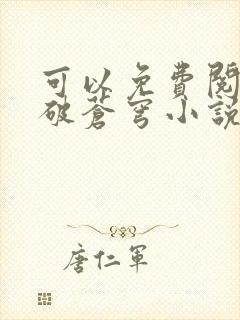 可以免費閱
破蒼穹小說
唐仁軍